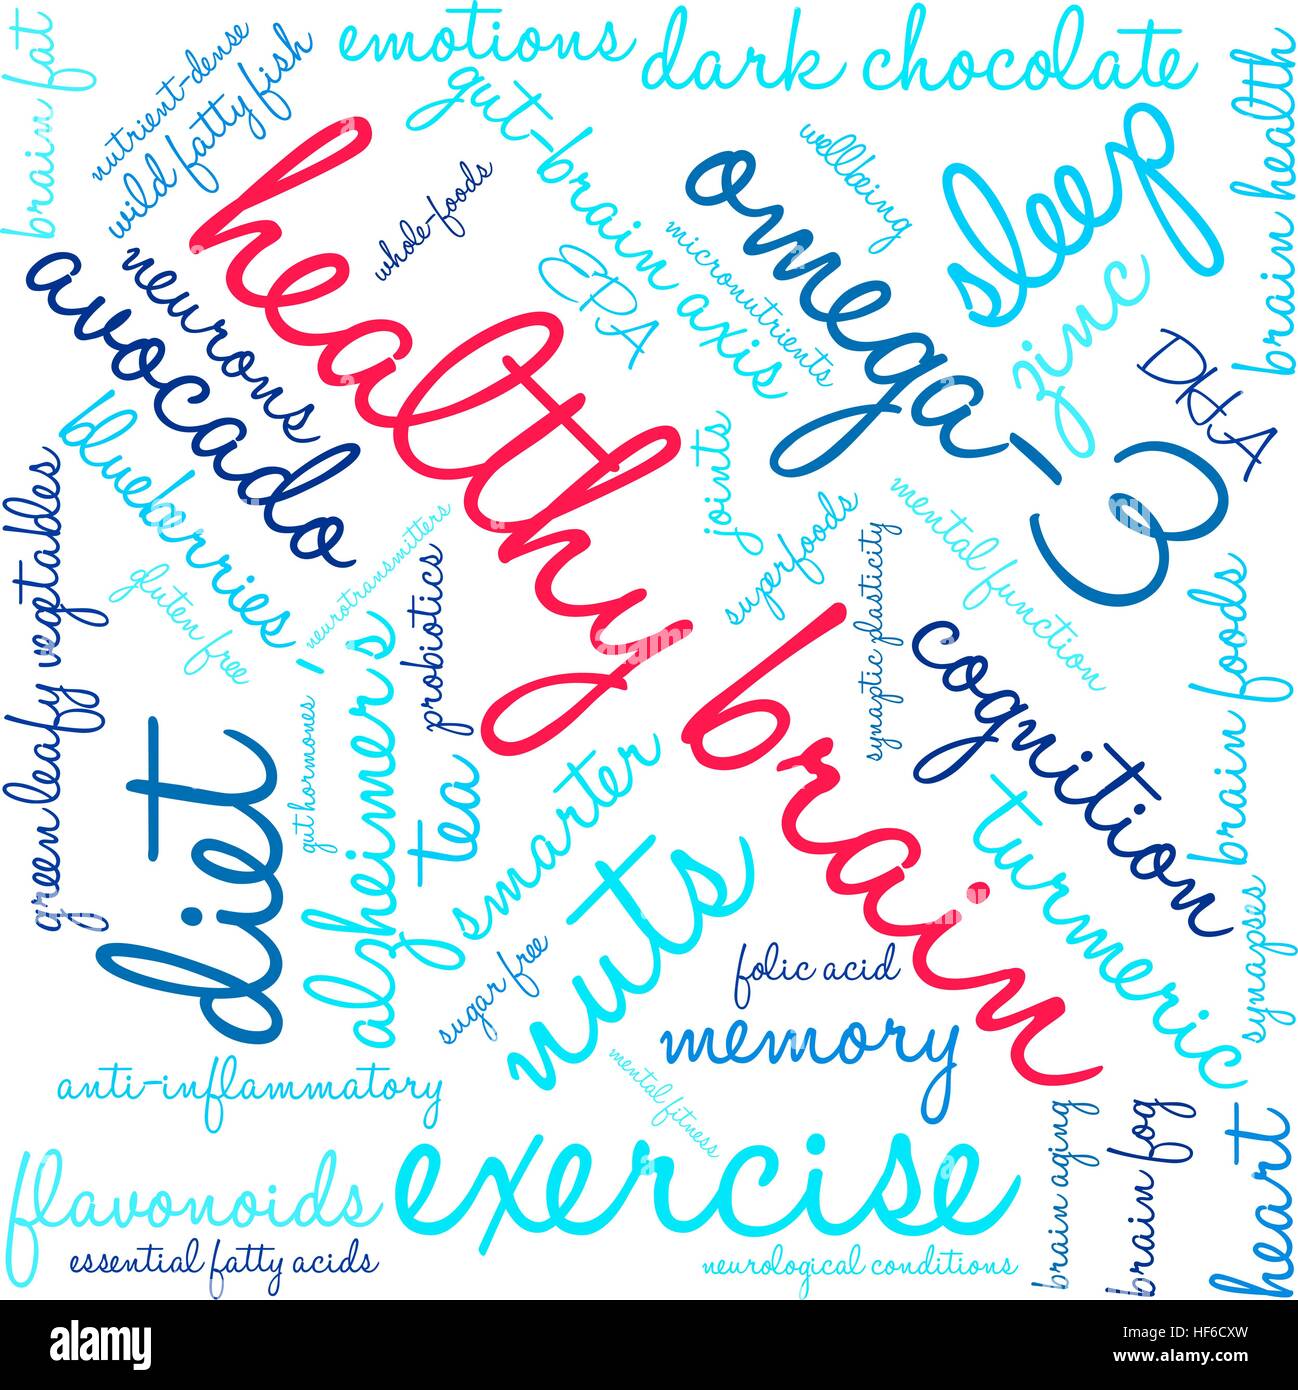 brain fat
nutrient-dense
wild fatty fish
emotions
dark chocolate
brain health
gut-brain axis
whole-foods
healthy
wellbeing
omega-3
sleep
micronutrients
EPA
zinc
DHA
neurons
avocado
blueberries
joints
green leafy vegetables
gluten free
neurotransmitters
probiotics
superfoods
synaptic plasticity
mental function
brain foods
alzheimer's
brain
cognition
diet
gut hormones
tea
smarter
turmeric
nuts
synapses
sugar free
folic acid
memory
anti-inflammatory
mental fitness
exercise
brain aging
brain fog
heart
flavonoids
essential fatty acids
neurological conditions
alamy
Image ID: HF6CXW
www.alamy.com